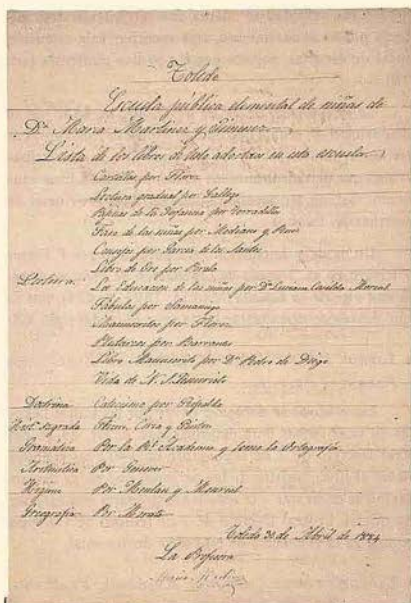 Toledo
Escuela pública elemental de niñas de
Dª Maria Martinez y Gimenez
Lista de los libros de texto adoptados en esta escuela.
Cartillas por Florez
Lectura gradual por Gallego
Páginas de la Infancia por Terradillos
Faro de las niñas por
Consejos por Garcia de los Santos
Libro de Oro por
Lectura. La Educacion de las niñas por Dª Luciana Casilda Monreal
Fábulas por Samaniego
Manuscritos por Florez
por Barranco
Libro Manuscrito por Dn Pedro de Diego
Vida de N. S. Jesucristo
Doctrina Catecismo por Ripalda
Histª Sagrada Fleuri, y
Gramática Por la Rl. Academia y como la Ortografía
Aritmética Por
Higiene Por Monlau y Monreal
Geografia Por Morato
Toledo 30 de Abril de 1884
La Profesora
Maria Martinez